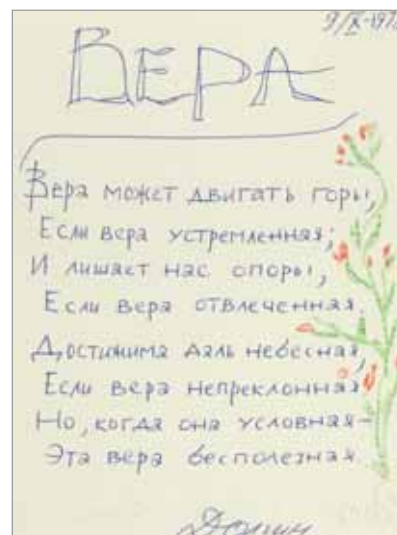 9/IX-197
ВЕРА
Вера может двигать горы,
Если вера устремленная;
И лишает нас опоры,
Если вера отвлеченная.
Достижима даль небесная,
Если вера непреклонная
Но, когда она условная–
Эта вера бесполезная.